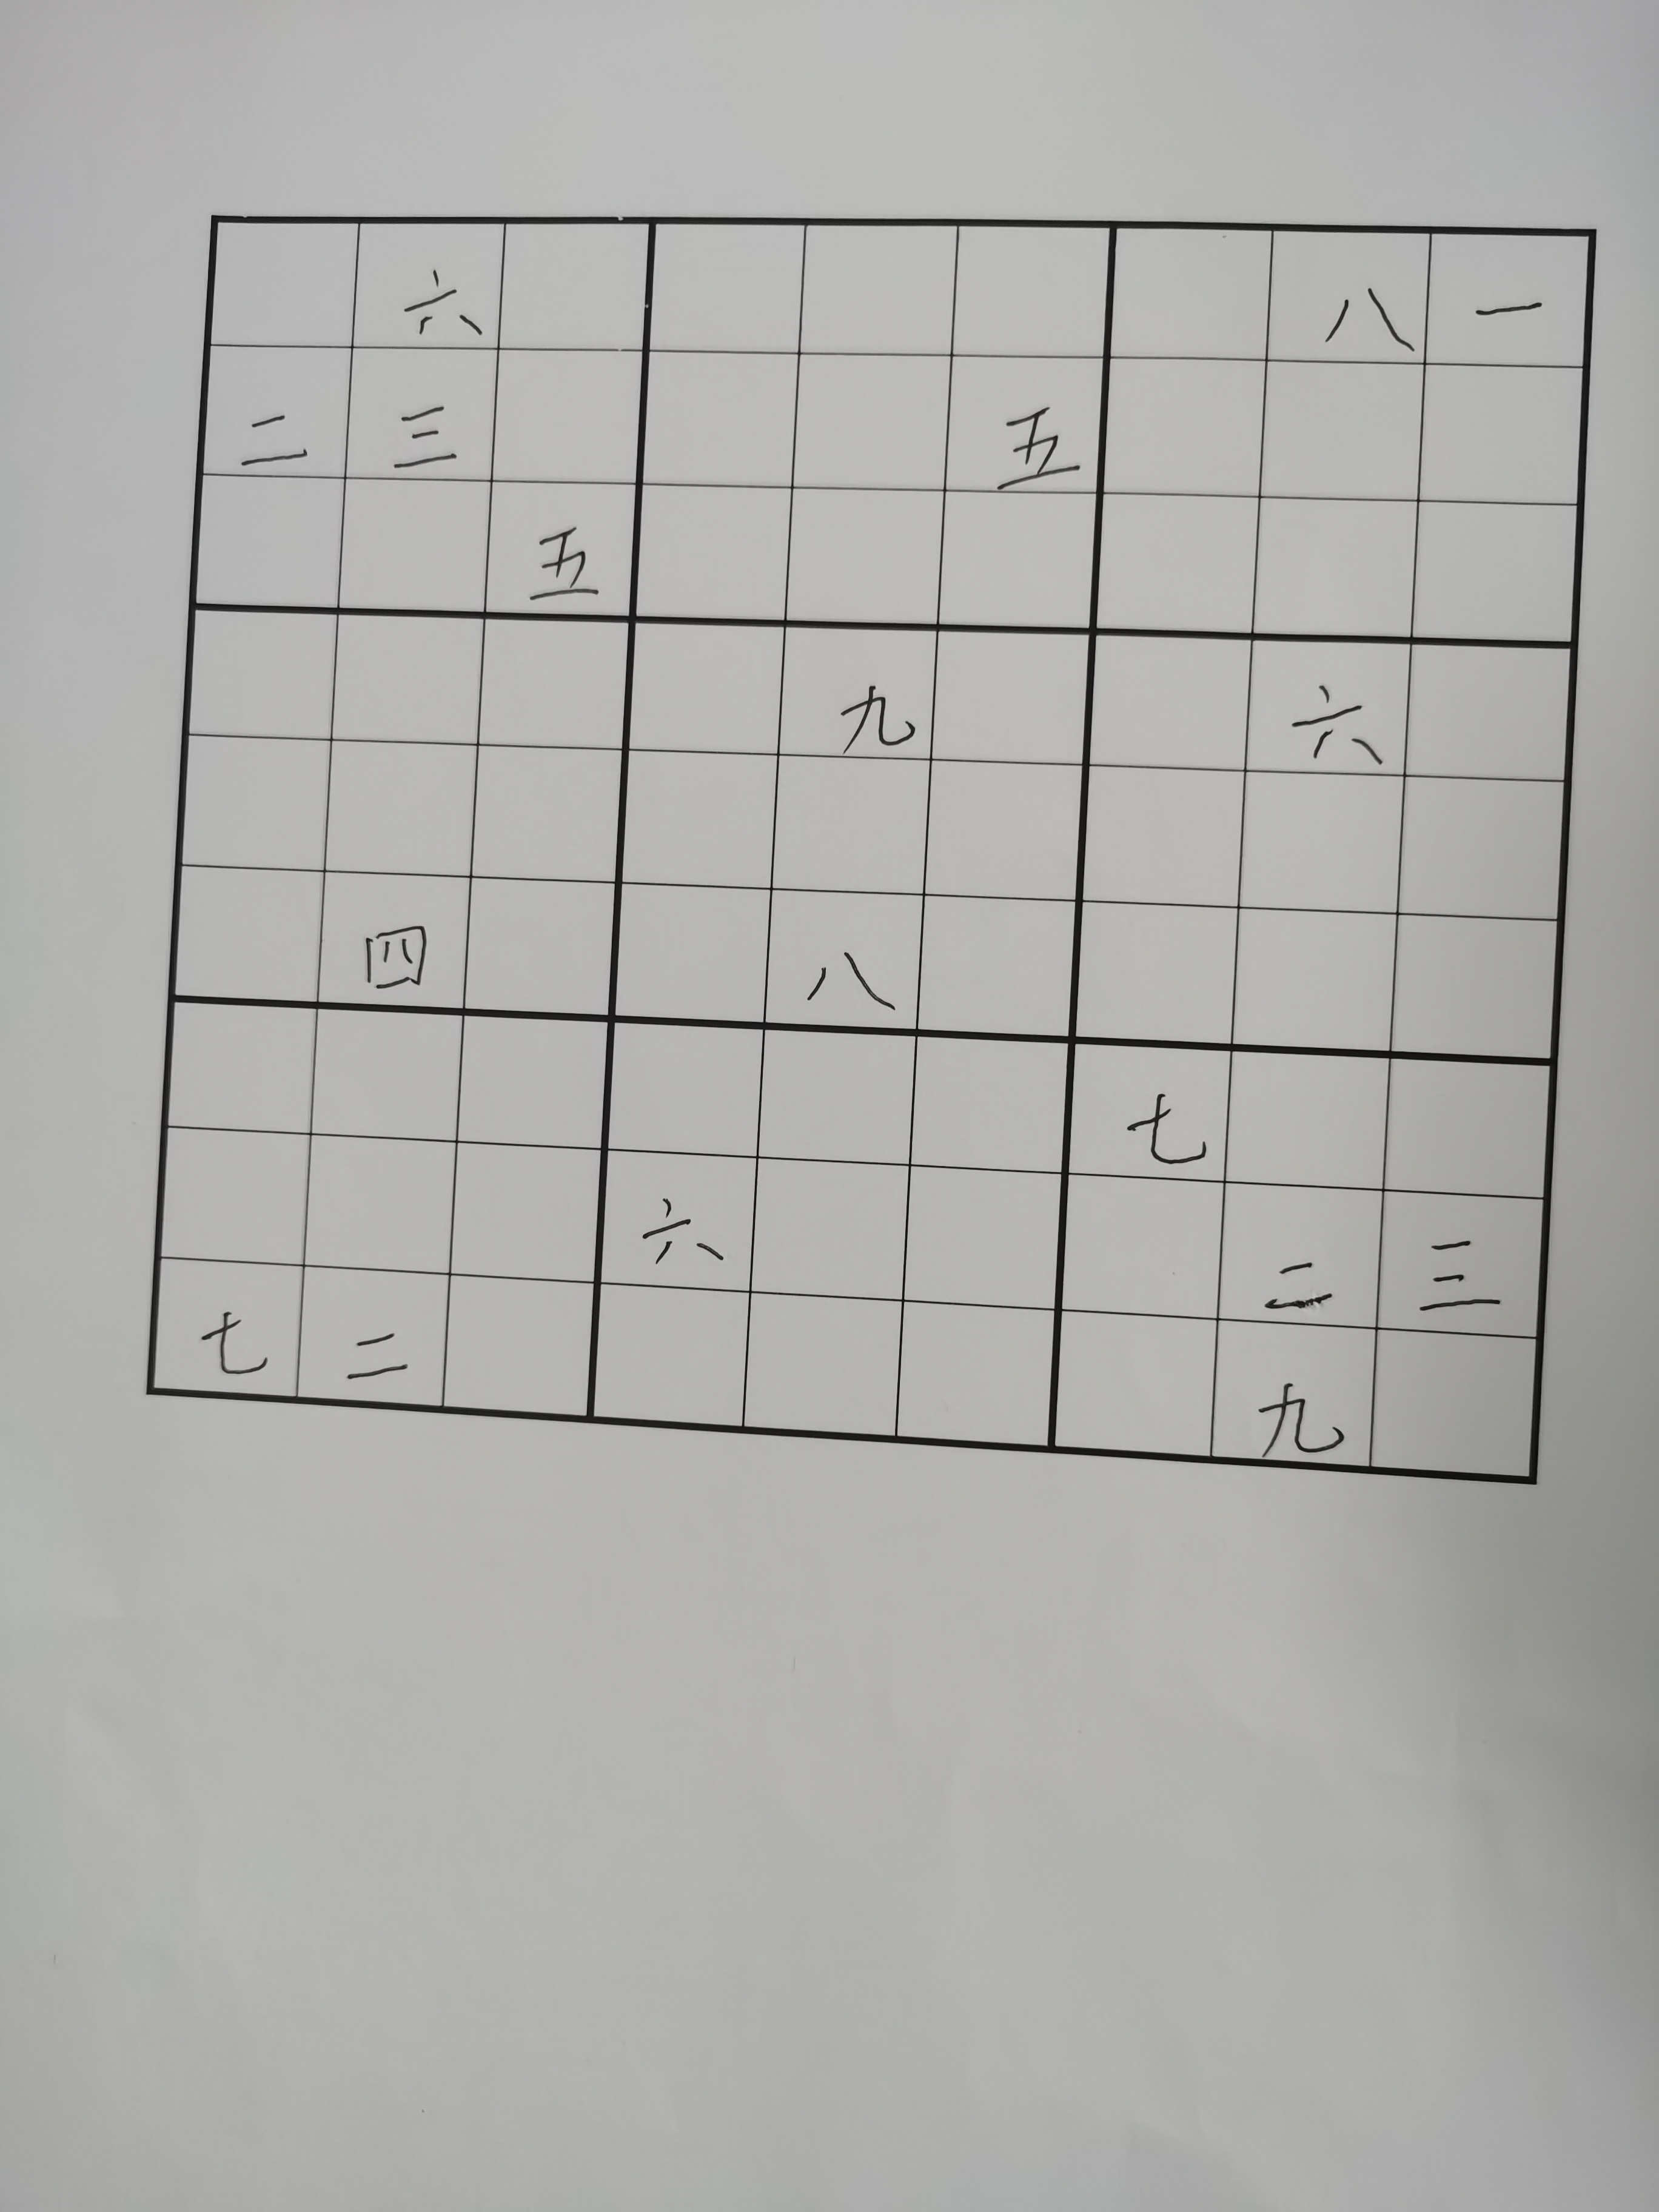 六 八 一
二 三 五
五
九 六
四 八
七
六 二 三
七 二 九